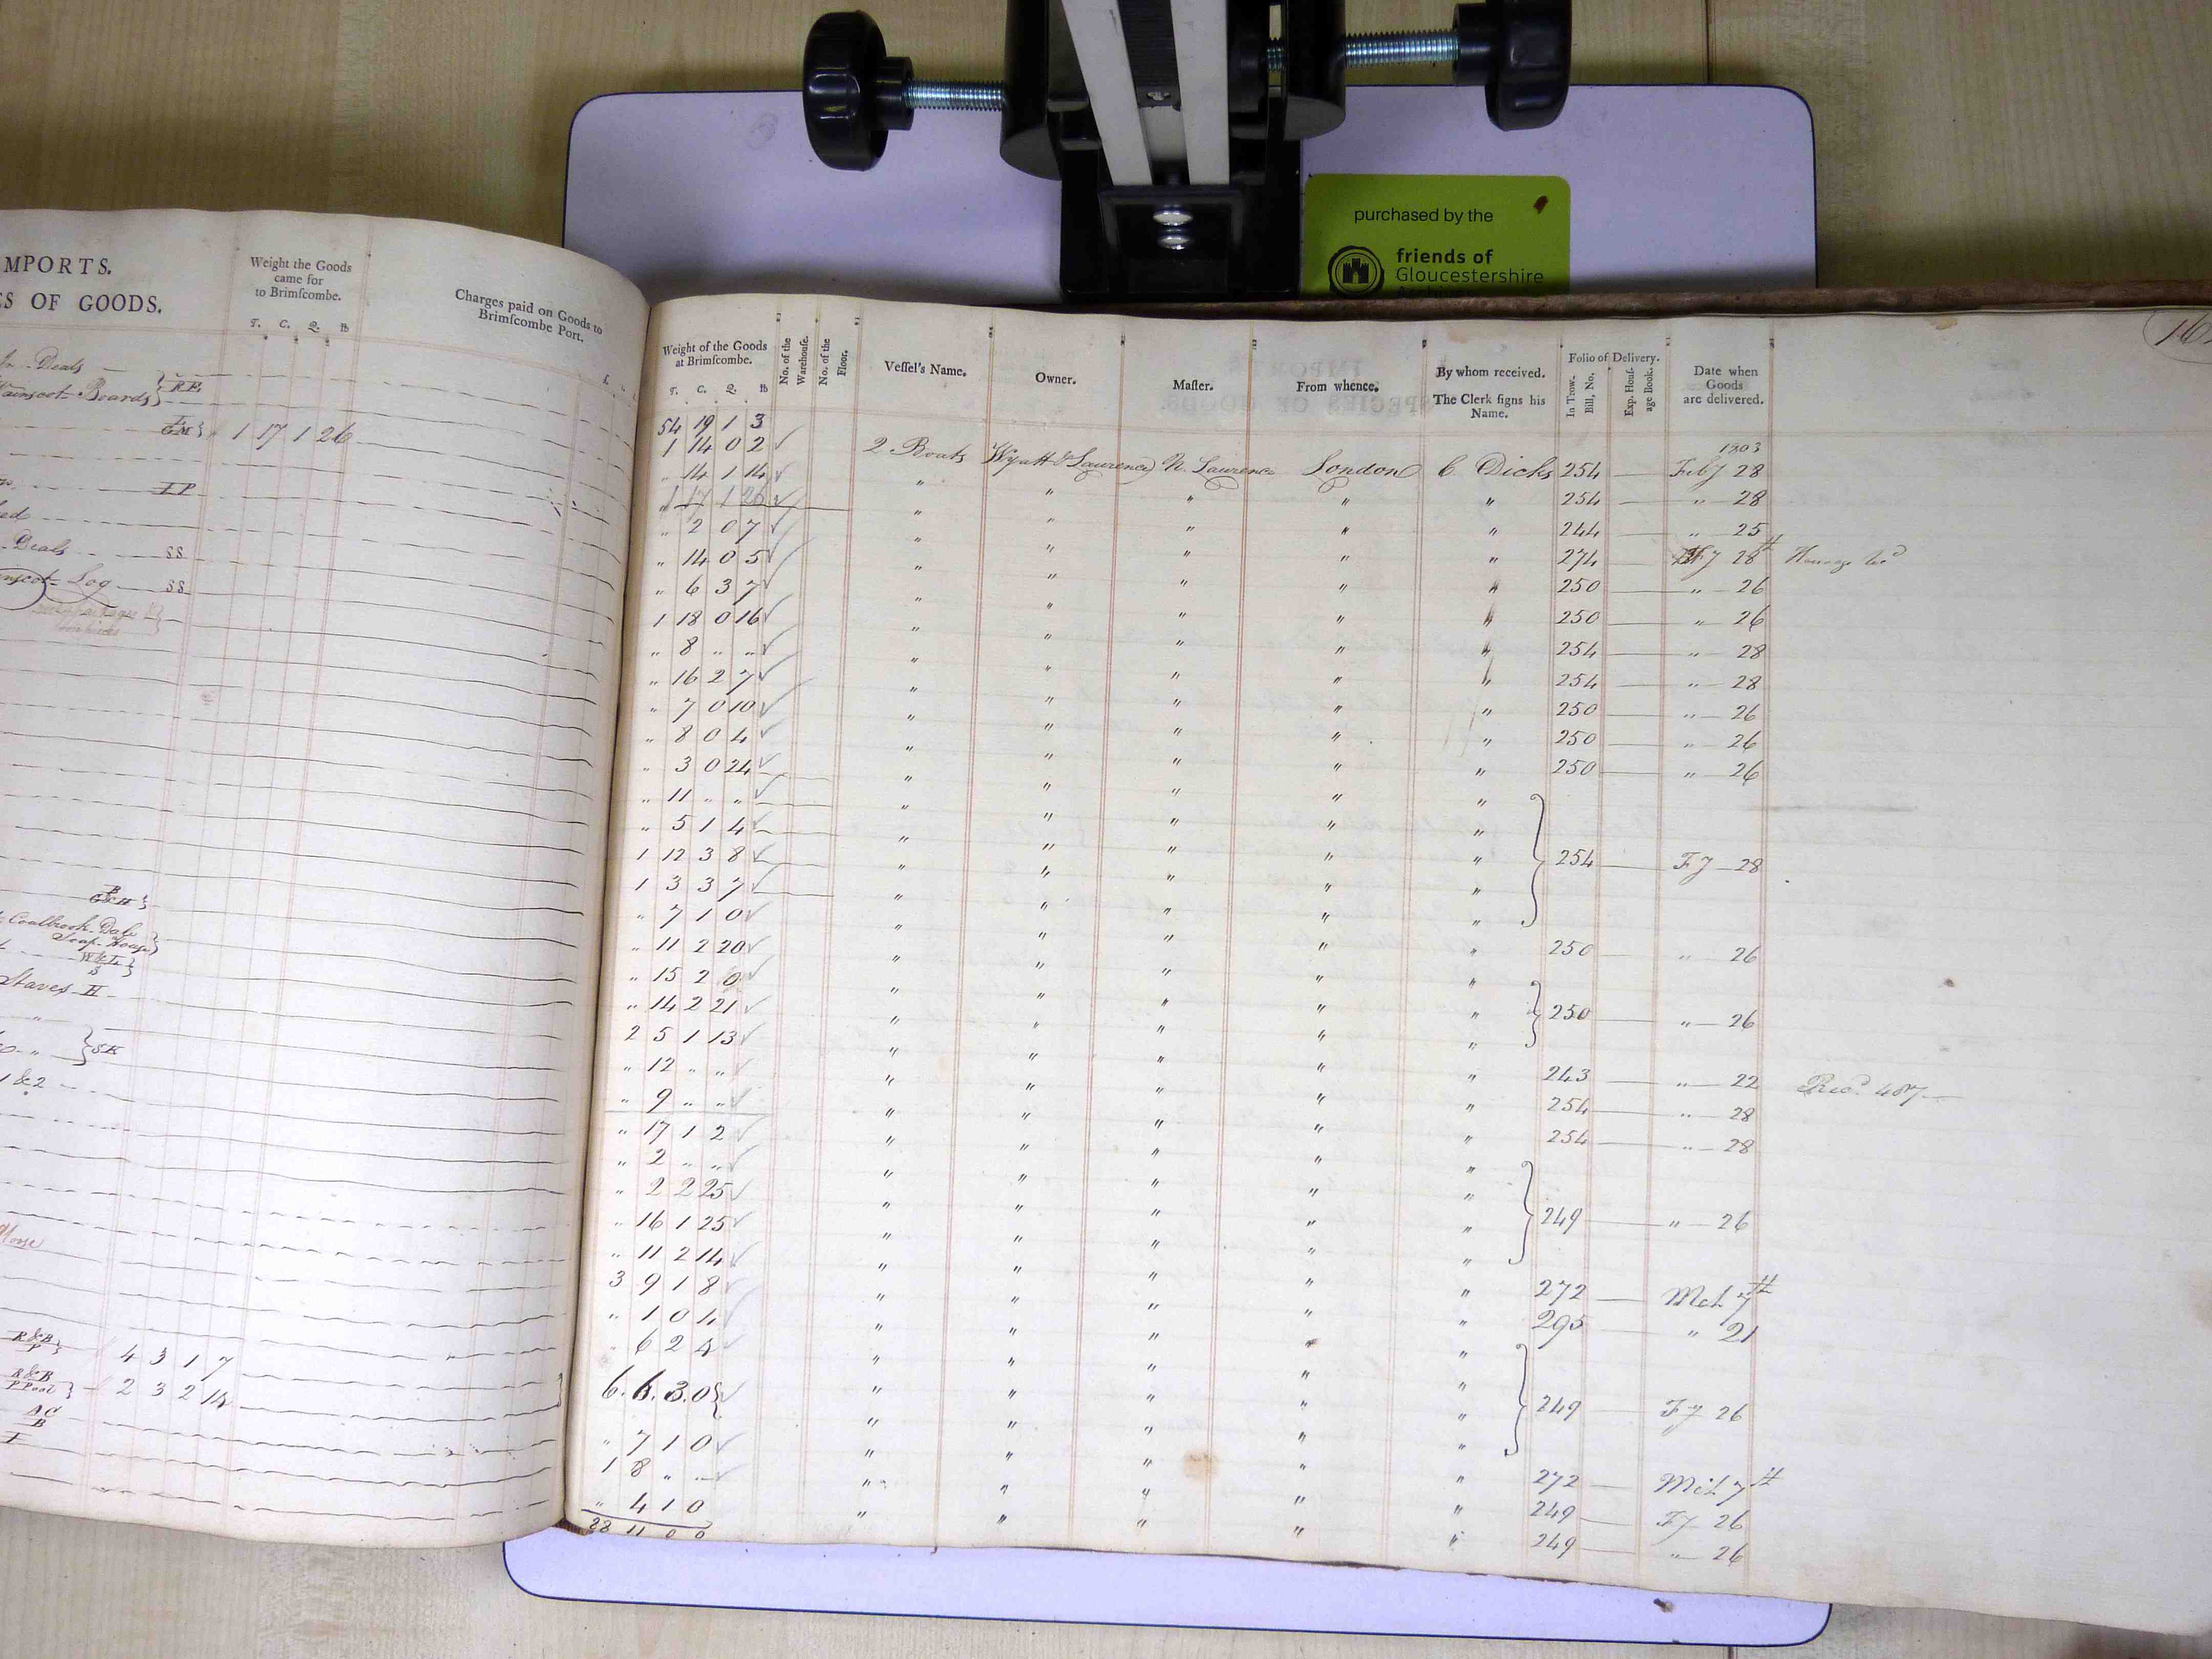 purchased by the
friends of
Gloucestershire
MPORTS.
ES OF GOODS.
Weight the Goods
came for
to Brimſcombe.
T. C. Q. lb
Charges paid on Goods to
Brimſcombe Port.
Deals
Wainscot Boards } R B
1 17 1 26
I P
Deals SS
Log SS
Coalbrook-Dale
Soap-House
Staves H
} SK
1 & 2
R & B
4 3 1 7
R & B
2 3 2 14
AC
B
Weight of the Goods
at Brimſcombe.
T. C. Q. lb
No. of the
Warehouſe.
No. of the
Floor.
Veſſel's Name.
Owner.
Maſter.
From whence.
By whom received.
The Clerk ſigns his
Name.
Folio of Delivery.
In Trow.
Bill, No.
Exp. Houſ-
age Book.
Date when
Goods
are delivered.
54 19 1 3
1803
1 14 0 2 2 Boats Wyatt & Laurence N. Laurence London C Dicks 254 Feby 28
" 14 1 14 " " " " " 254 " 28
1 17 1 26 " " " " " 244 " 25
" 2 0 7 " " " " " 274 28th
" 14 0 5 " " " " " 250 " 26
" 6 3 7 " " " " " 250 " 26
1 18 0 16 " " " " " 254 " 28
" 8 " " " " " " " 254 " 28
" 16 2 7 " " " " " 250 " 26
" 7 0 10 " " " " " 250 " 26
" 8 0 4 " " " " " 250 " 26
" 3 0 24 " " " " "
" 11 " " " " " " "
" 5 1 4 " " " " " } 254 Fy 28
1 12 3 8 " " " " "
1 3 3 7 " " " " "
" 7 1 0 " " " " " 250 " 26
" 11 2 20 " " " " "
" 15 2 0 " " " " " } 250 " 26
" 14 2 21 " " " " "
2 5 1 13 " " " " " 243 " 22 Recd. 487
" 12 " " " " " " " 254 " 28
" 9 " " " " " " " 254 " 28
" 17 1 2 " " " " "
" 2 " " " " " " "
" 2 2 25 " " " " " } 249 " 26
" 16 1 25 " " " " "
" 11 2 14 " " " " " 272 Mch 7th
3 9 1 8 " " " " " 295 " 21
" 1 0 4 " " " " "
" 6 2 4 " " " " "
6. 6. 3. 0 } " " " " " } 249 Fy 26
" 7 1 0 " " " " " 272 Mch 7th
1 8 " " " " " " " 249 Fy 26
" 4 1 0 " " " " " 249 " 26
28 11 0 0